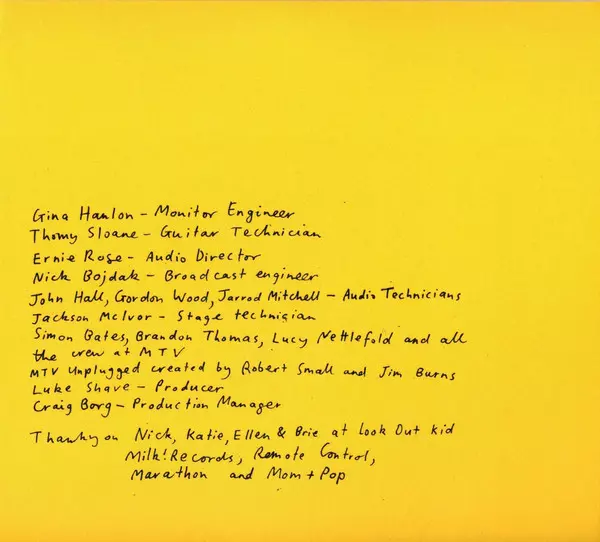 Gina Hanlon - Monitor Engineer
Thomy Sloane - Guitar Technician
Ernie Rose - Audio Director
Nick Bojdak - Broadcast engineer
John Hall, Gordon Wood, Jarrod Mitchell - Audio Technicians
Jackson McIvor - Stage technician
Simon Bates, Brandon Thomas, Lucy Nettlefold and all
the crew at MTV
MTV Unplugged created by Robert Small and Jim Burns
Luke Shave - Producer
Craig Borg - Production Manager
Thankyou Nick, Katie, Ellen & Brie at Look Out Kid
Milk! Records, Remote Control,
Marathon and Mom + Pop